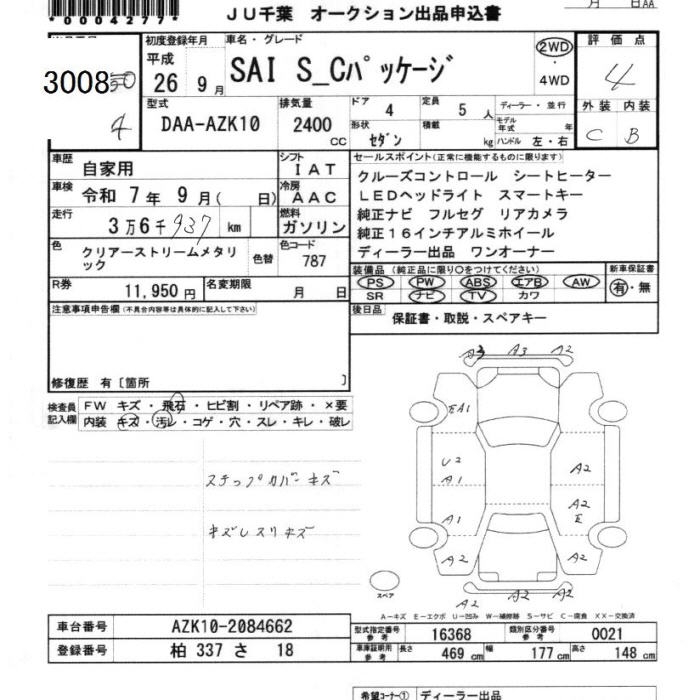 *0004277*
JU千葉 オークション出品申込書
月 日AA
初度登録年月
車名・グレード
評価点
平成
26 9月
SAI S_Cパッケージ
2WD
・
4WD
4
3008
4
型式
排気量
ドア 4
定員 5人
ディーラー・並行
外装 内装
DAA-AZK10
2400 CC
形状 セダン
積載 kg
モデル年式 年
ハンドル 左・右
C B
車歴
自家用
シフト
IAT
セールスポイント(正常に機能するものに限ります)
車検
令和 7年 9月( 日)
冷房
AAC
クルーズコントロール シートヒーター
LEDヘッドライト スマートキー
走行
3万6千937 km
燃料
ガソリン
純正ナビ フルセグ リアカメラ
純正16インチアルミホイール
色
クリアーストリームメタリック
色替
色コード
787
ディーラー出品 ワンオーナー
装備品(純正品に限り○をつけてください)
新車保証書
R券
11,950円
名変期限
月 日
PS PW ABS エアB AW
SR ナビ TV カワ
有・無
注意事項申告欄(不具合内容等は具体的に記入して下さい)
後日品
保証書・取説・スペアキー
修復歴 有〔箇所 〕
検査員記入欄
FW キズ・飛石・ヒビ割・リペア跡・×要
内装 キズ・汚レ・コゲ・穴・スレ・キレ・破レ
A3 A3 A2
EA1
U2
A1
A2
A1
A2
E
A2
A2
A2
A2 A2
ステップカバーキズ
キズレスリキズ
スペア
A-キズ E-エクボ U-凹み W-補修跡 S-サビ C-腐食 XX-交換済
車台番号
AZK10-2084662
型式指定番号 参考
16368
類別区分番号 参考
0021
登録番号
柏 337 さ 18
車庫証明用 参考
長さ 469 cm
幅 177 cm
高さ 148 cm
希望コーナー① ディーラー出品